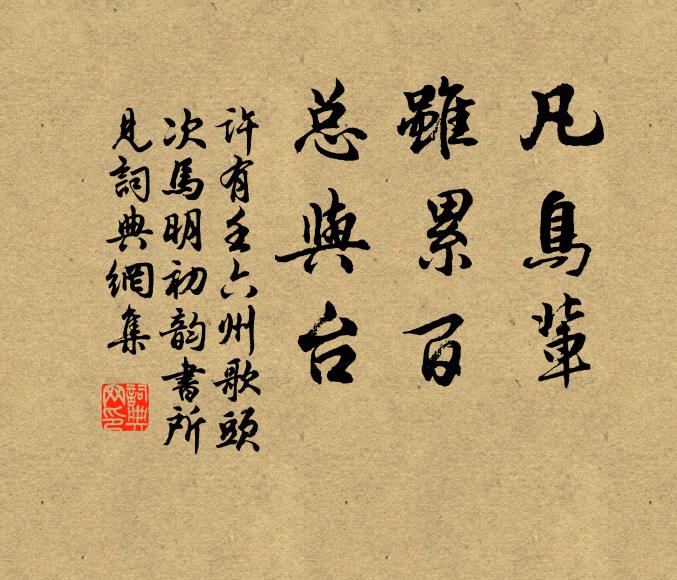 凡鳥輩
雖累百
总輿台
許有壬六州歌頭
次馬明初韵書所
見詞典網集
詞典
网印